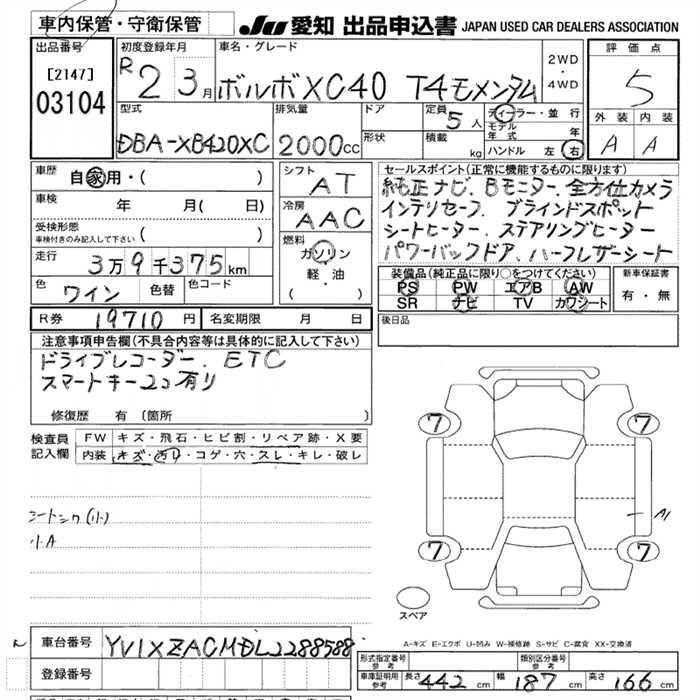 車内保管・守衛保管
JU 愛知 出品申込書 JAPAN USED CAR DEALERS ASSOCIATION
出品番号 [2147] 03104
初度登録年月 R2 3月
車名・グレード ボルボXC40 T4モメンタム
2WD・4WD
評価点 5
外装 A 内装 A
型式 DBA-XB420XC
排気量 2000cc
ドア 形状
定員 5人
積載 kg
ディーラー・並行
モデル年式 年
ハンドル 左 右
車歴 自家用・( )
車検 年 月( 日)
受検形態 車検付きのみ記入して下さい ( )
走行 3万9千375km
色 ワイン 色替 色コード
シフト AT
冷房 AAC
燃料 ガソリン 軽・油 ( )
セールスポイント(正常に機能するものに限ります)
純正ナビ、Bモニター、全方位カメラ
インテリセーフ、ブラインドスポット
シートヒーター、ステアリングヒーター
パワーバックドア、ハーフレザーシート
装備品(純正品に限り○をつけてください)
PS PW エアB AW
SR ナビ TV カワシート
新車保証書 有・無
R券 19710円 名変期限 月 日
後日品
注意事項申告欄(不具合内容等は具体的に記入して下さい)
ドライブレコーダー、ETC
スマートキー2コ有り
修復歴 有 (箇所 )
検査員記入欄
FW キズ・飛石・ヒビ割・リペア跡・X要
内装 キズ・汚れ・コゲ・穴・スレ・キレ・破レ
7 7
7 7
A1
小A
スペア
A-キズ E-エクボ U-凹み W-補修跡 S-サビ C-腐食 XX-交換済
車台番号 YV1XZACMDL2288588
登録番号
形式指定番号 参考
類別区分番号 参考
車庫証明用 参考 長さ 442cm 幅 187cm 高さ 166cm